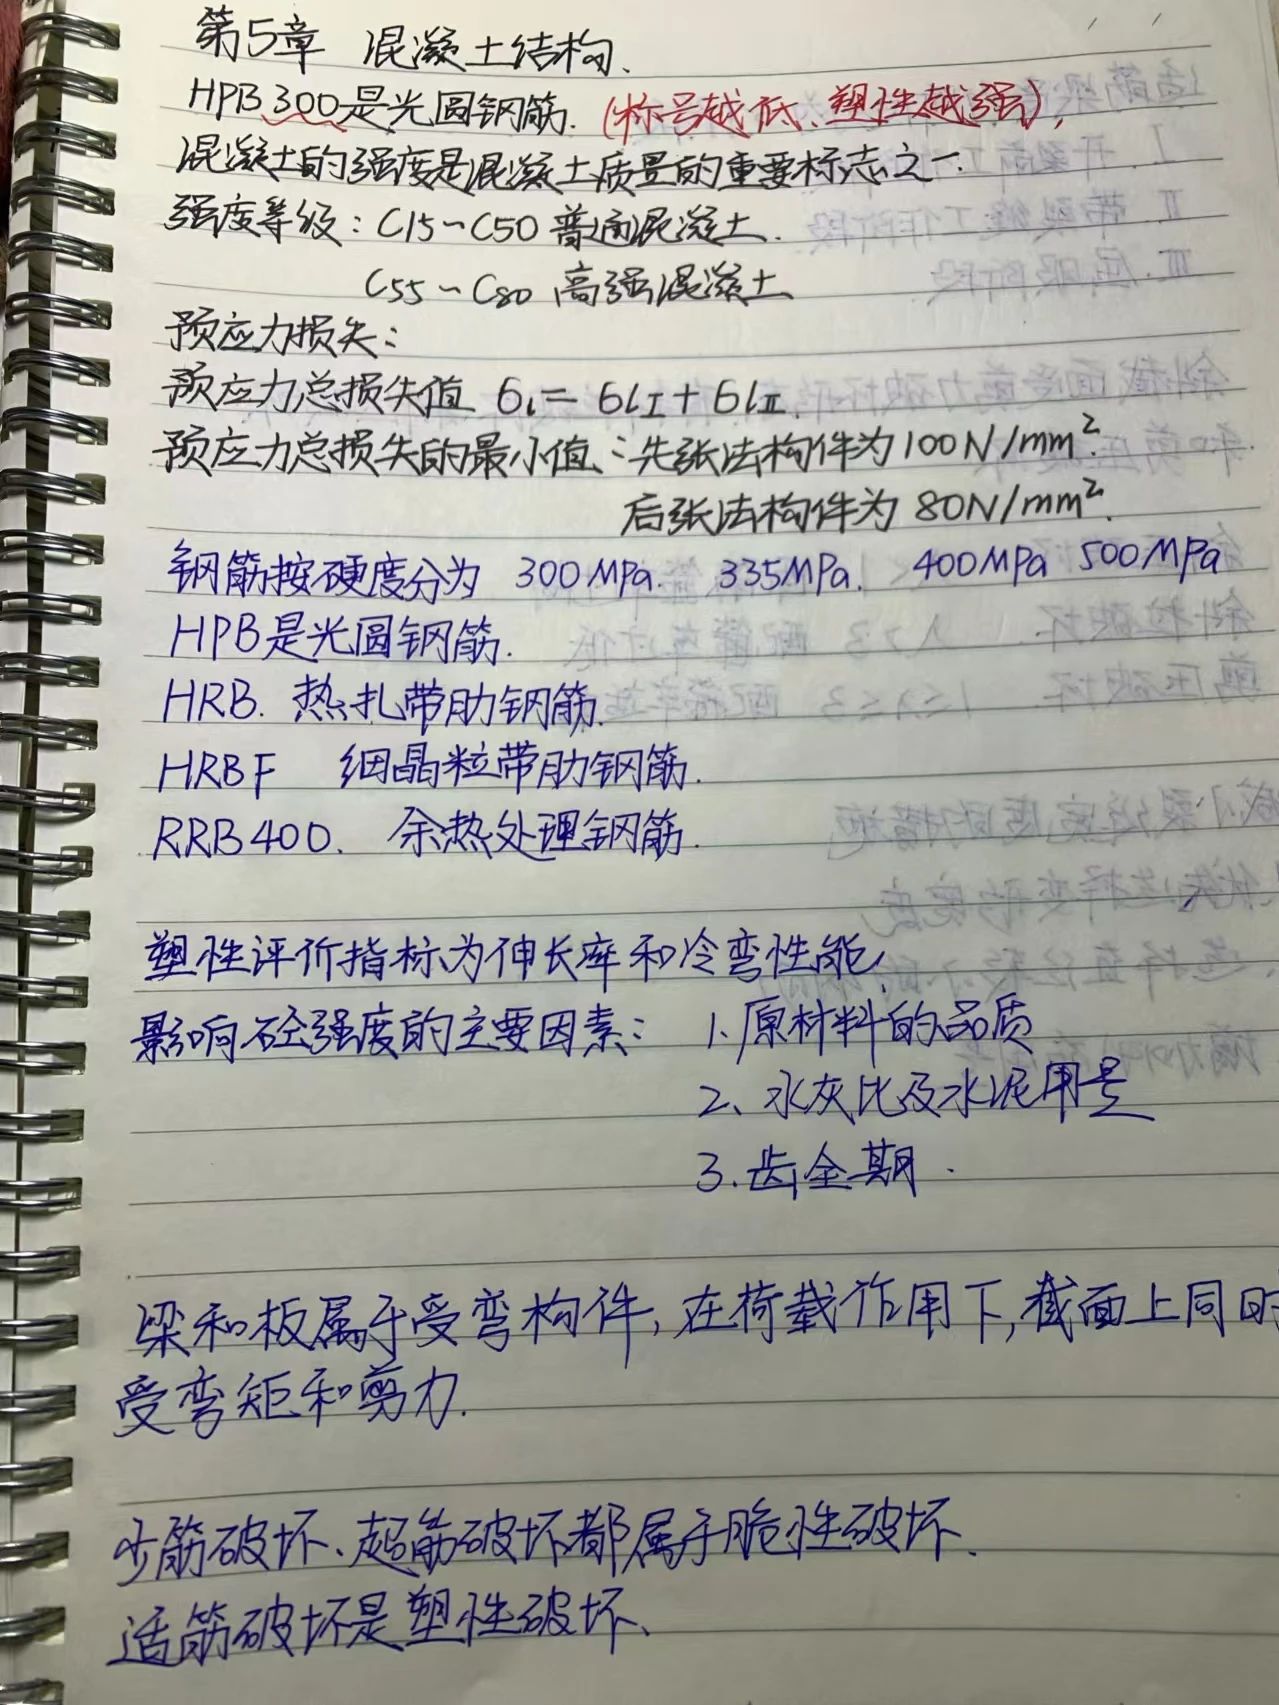 第5章 混凝土结构.
HPB300是光圆钢筋. (标号越低、塑性越强),
混凝土的强度是混凝土质量的重要标志之一.
强度等级: C15~C50 普通混凝土.
C55~C80 高强混凝土
预应力损失:
预应力总损失值 6l = 6lⅠ + 6lⅡ.
预应力总损失的最小值: 先张法构件为100N/mm².
后张法构件为 80N/mm².
钢筋按硬度分为 300MPa. 335MPa. 400MPa 500MPa
HPB是光圆钢筋.
HRB. 热扎带肋钢筋.
HRBF 细晶粒带肋钢筋.
RRB400. 余热处理钢筋.
塑性评价指标为伸长率和冷弯性能,
影响砼强度的主要因素: 1.原材料的品质
2、水灰比及水泥用量
3.齿全期.
梁和板属于受弯构件,在荷载作用下,截面上同时
受弯矩和剪力.
少筋破坏、超筋破坏都属于脆性破坏.
适筋破坏是塑性破坏、